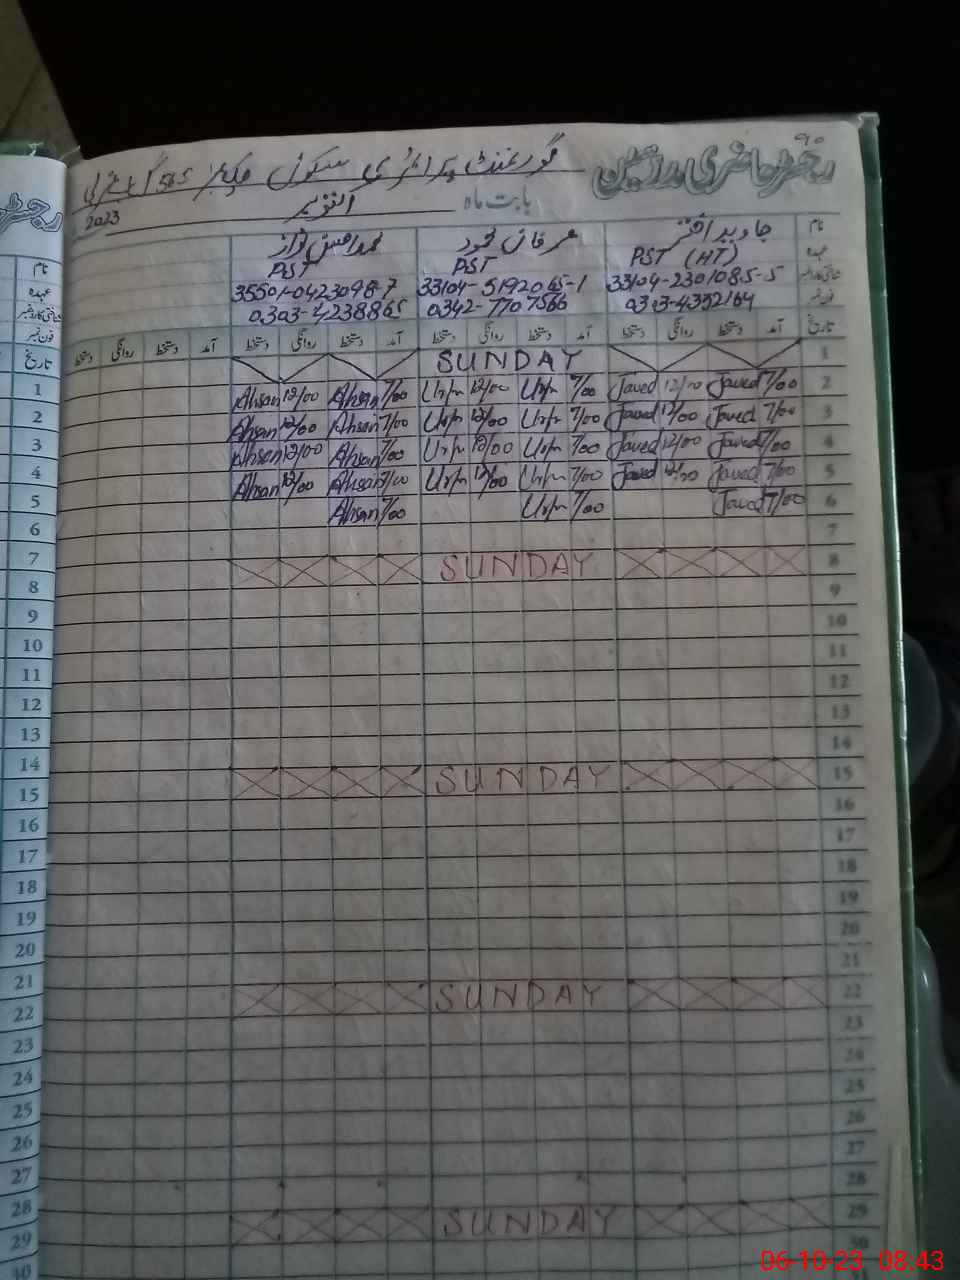 ۹۰
رجسٹر حاضری مدرسین
گورنمنٹ پرائمری سکول
بابت ماہ اکتوبر 2023
نام جاوید اختر عرفان محمود محمد احسن نواز
عہدہ PST (HT) PST PST
شناختی کارڈ نمبر 33104-2301085-5 33104-5192065-1 35501-0423098-7
فون نمبر 0303-4332164 0342-7707566 0303-4238865
تاریخ آمد دستخط روانگی دستخط آمد دستخط روانگی دستخط آمد دستخط روانگی دستخط آمد دستخط روانگی دستخط
SUNDAY 1
Ahsan 12/00 Ahsan 7/00 Urfn 12/00 Urfn 7/00 Javed 12/00 Javed 7/00 2
Ahsan 12/00 Ahsan 7/00 Urfn 12/00 Urfn 7/00 Javed 12/00 Javed 7/00 3
Ahsan 12/00 Ahsan 7/00 Urfn 12/00 Urfn 7/00 Javed 12/00 Javed 7/00 4
Ahsan 12/00 Ahsan 7/00 Urfn 12/00 Urfn 7/00 Javed 12/00 Javed 7/00 5
Ahsan 7/00 Urfn 7/00 Javed 7/00 6
7
SUNDAY 8
9
10
11
12
13
14
SUNDAY 15
16
17
18
19
20
21
SUNDAY 22
23
24
25
26
27
28
SUNDAY 29
30
نام
عہدہ
شناختی کارڈ نمبر
فون نمبر
تاریخ
1
2
3
4
5
6
7
8
9
10
11
12
13
14
15
16
17
18
19
20
21
22
23
24
25
26
27
28
29
30
06-10-23 08:43